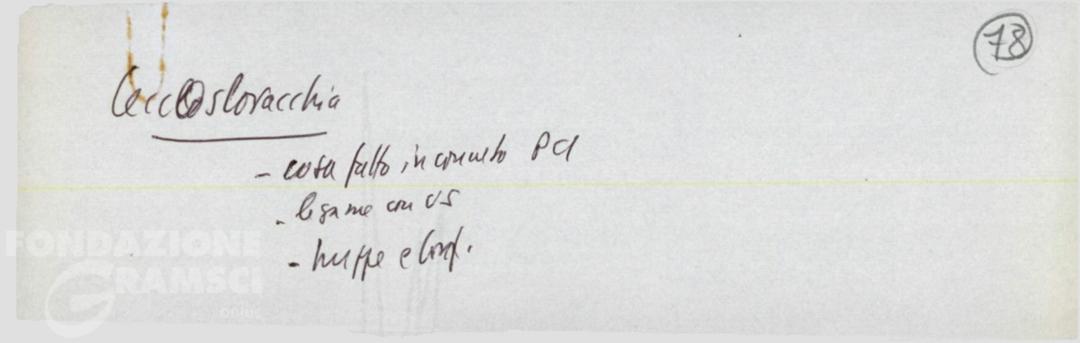 78
Cecoslovacchia
- cosa fatto in concreto PCI
- legame con US
- truppe e
FONDAZIONE
GRAMSCI
onlus